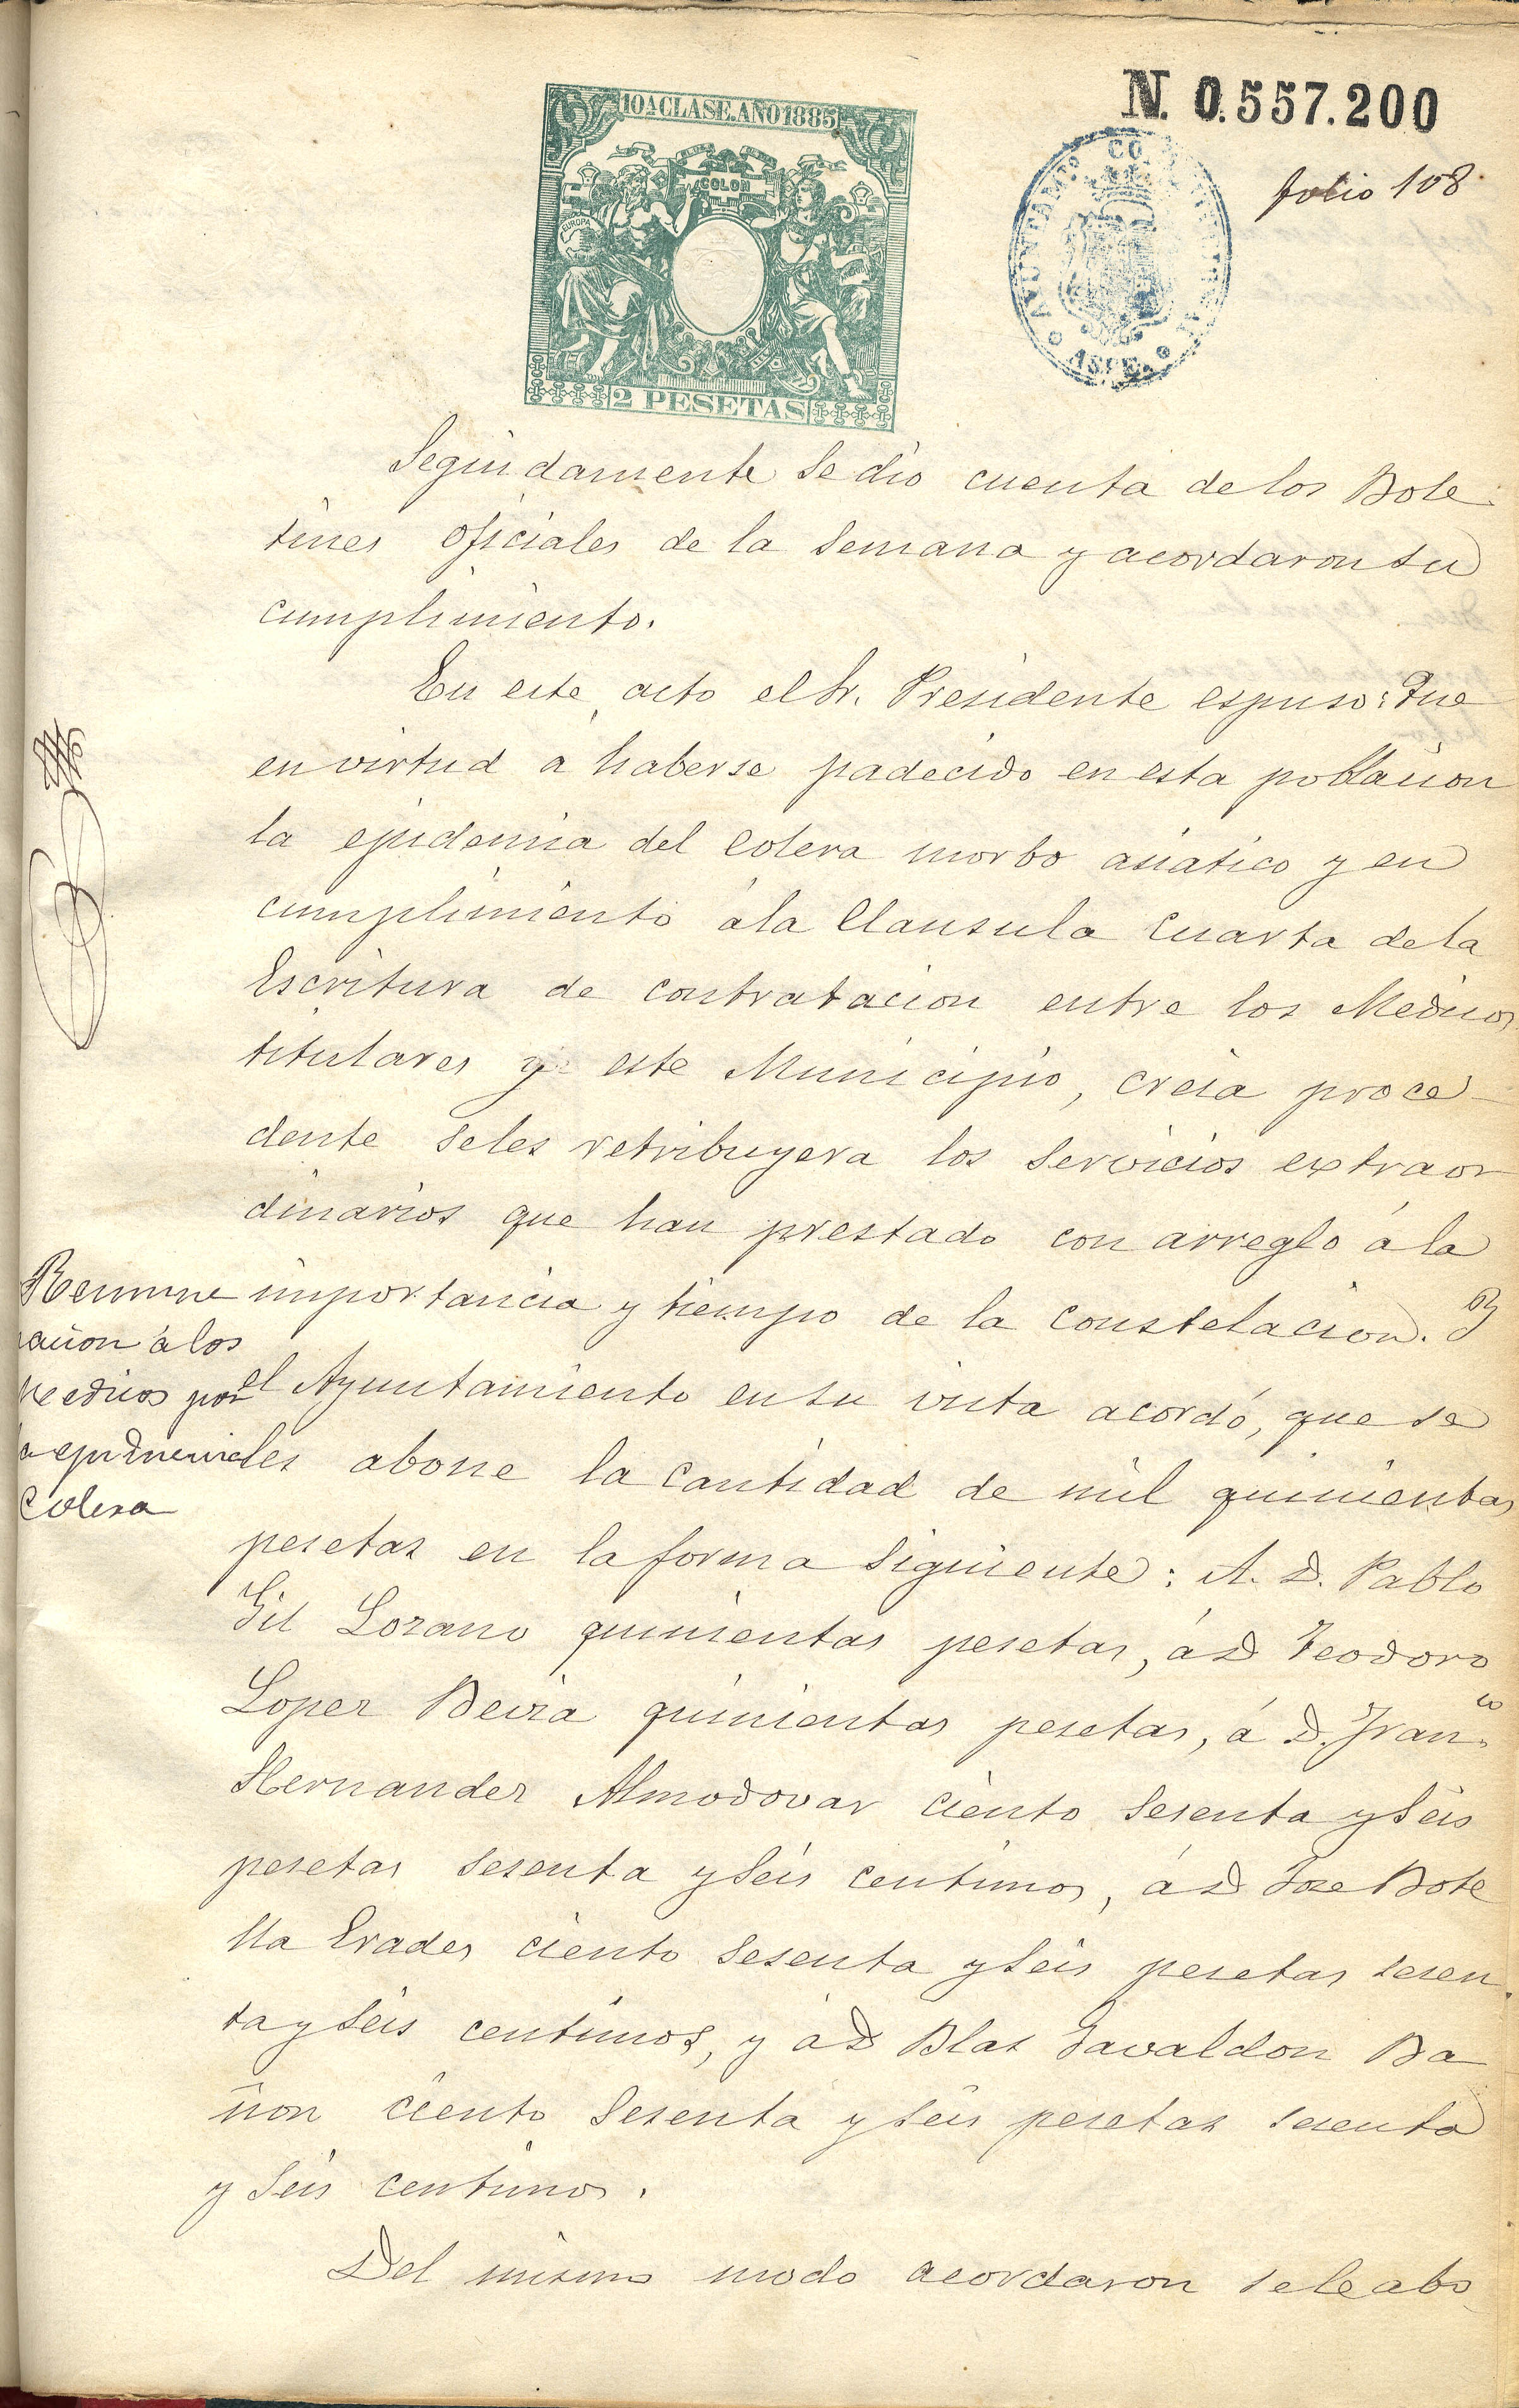 N. 0.557.200
10.A CLASE. AÑO 1885
COLON
EUROPA
2 PESETAS
AYUNTAMTO CO
ASPE
folio 108
Seguidamente se dio cuenta de los Bole
tines oficiales de la Semana y acordaron su
cumplimiento.
En este acto el Sr. Presidente espuso: Que
en virtud a haberse padecido en esta poblacion
la epidemia del Colera morbo asiatico y en
cumplimiento á la Clausula Cuarta de la
Escritura de contratacion entre los Medicos
titulares y este Municipio, creia proce-
dente se les retribuyera los Servicios extraor
dinarios que han prestado con arreglo á la
importancia y tiempo de la constelacion. Y
el Ayuntamiento en su vista acordó, que se
les abone la Cantidad de mil quinientas
pesetas en la forma Siguiente: A. D. Pablo
Gil Lozano quinientas pesetas, á D Teodoro
Lopez Devia quinientas pesetas, á D. Franco
Hernandez Almodovar ciento sesenta y Seis
pesetas sesenta y Seis Centimos, á D Jose Bote
lla Erades ciento sesenta y Seis pesetas sesen
ta y Seis centimos, y á D Blas Gavaldon Ba
ñon ciento sesenta y seis pesetas sesenta
y Seis Centimos.
Del mismo modo acordaron se le abo
Remune
racion á los
Medicos por
la epidemia
Colera